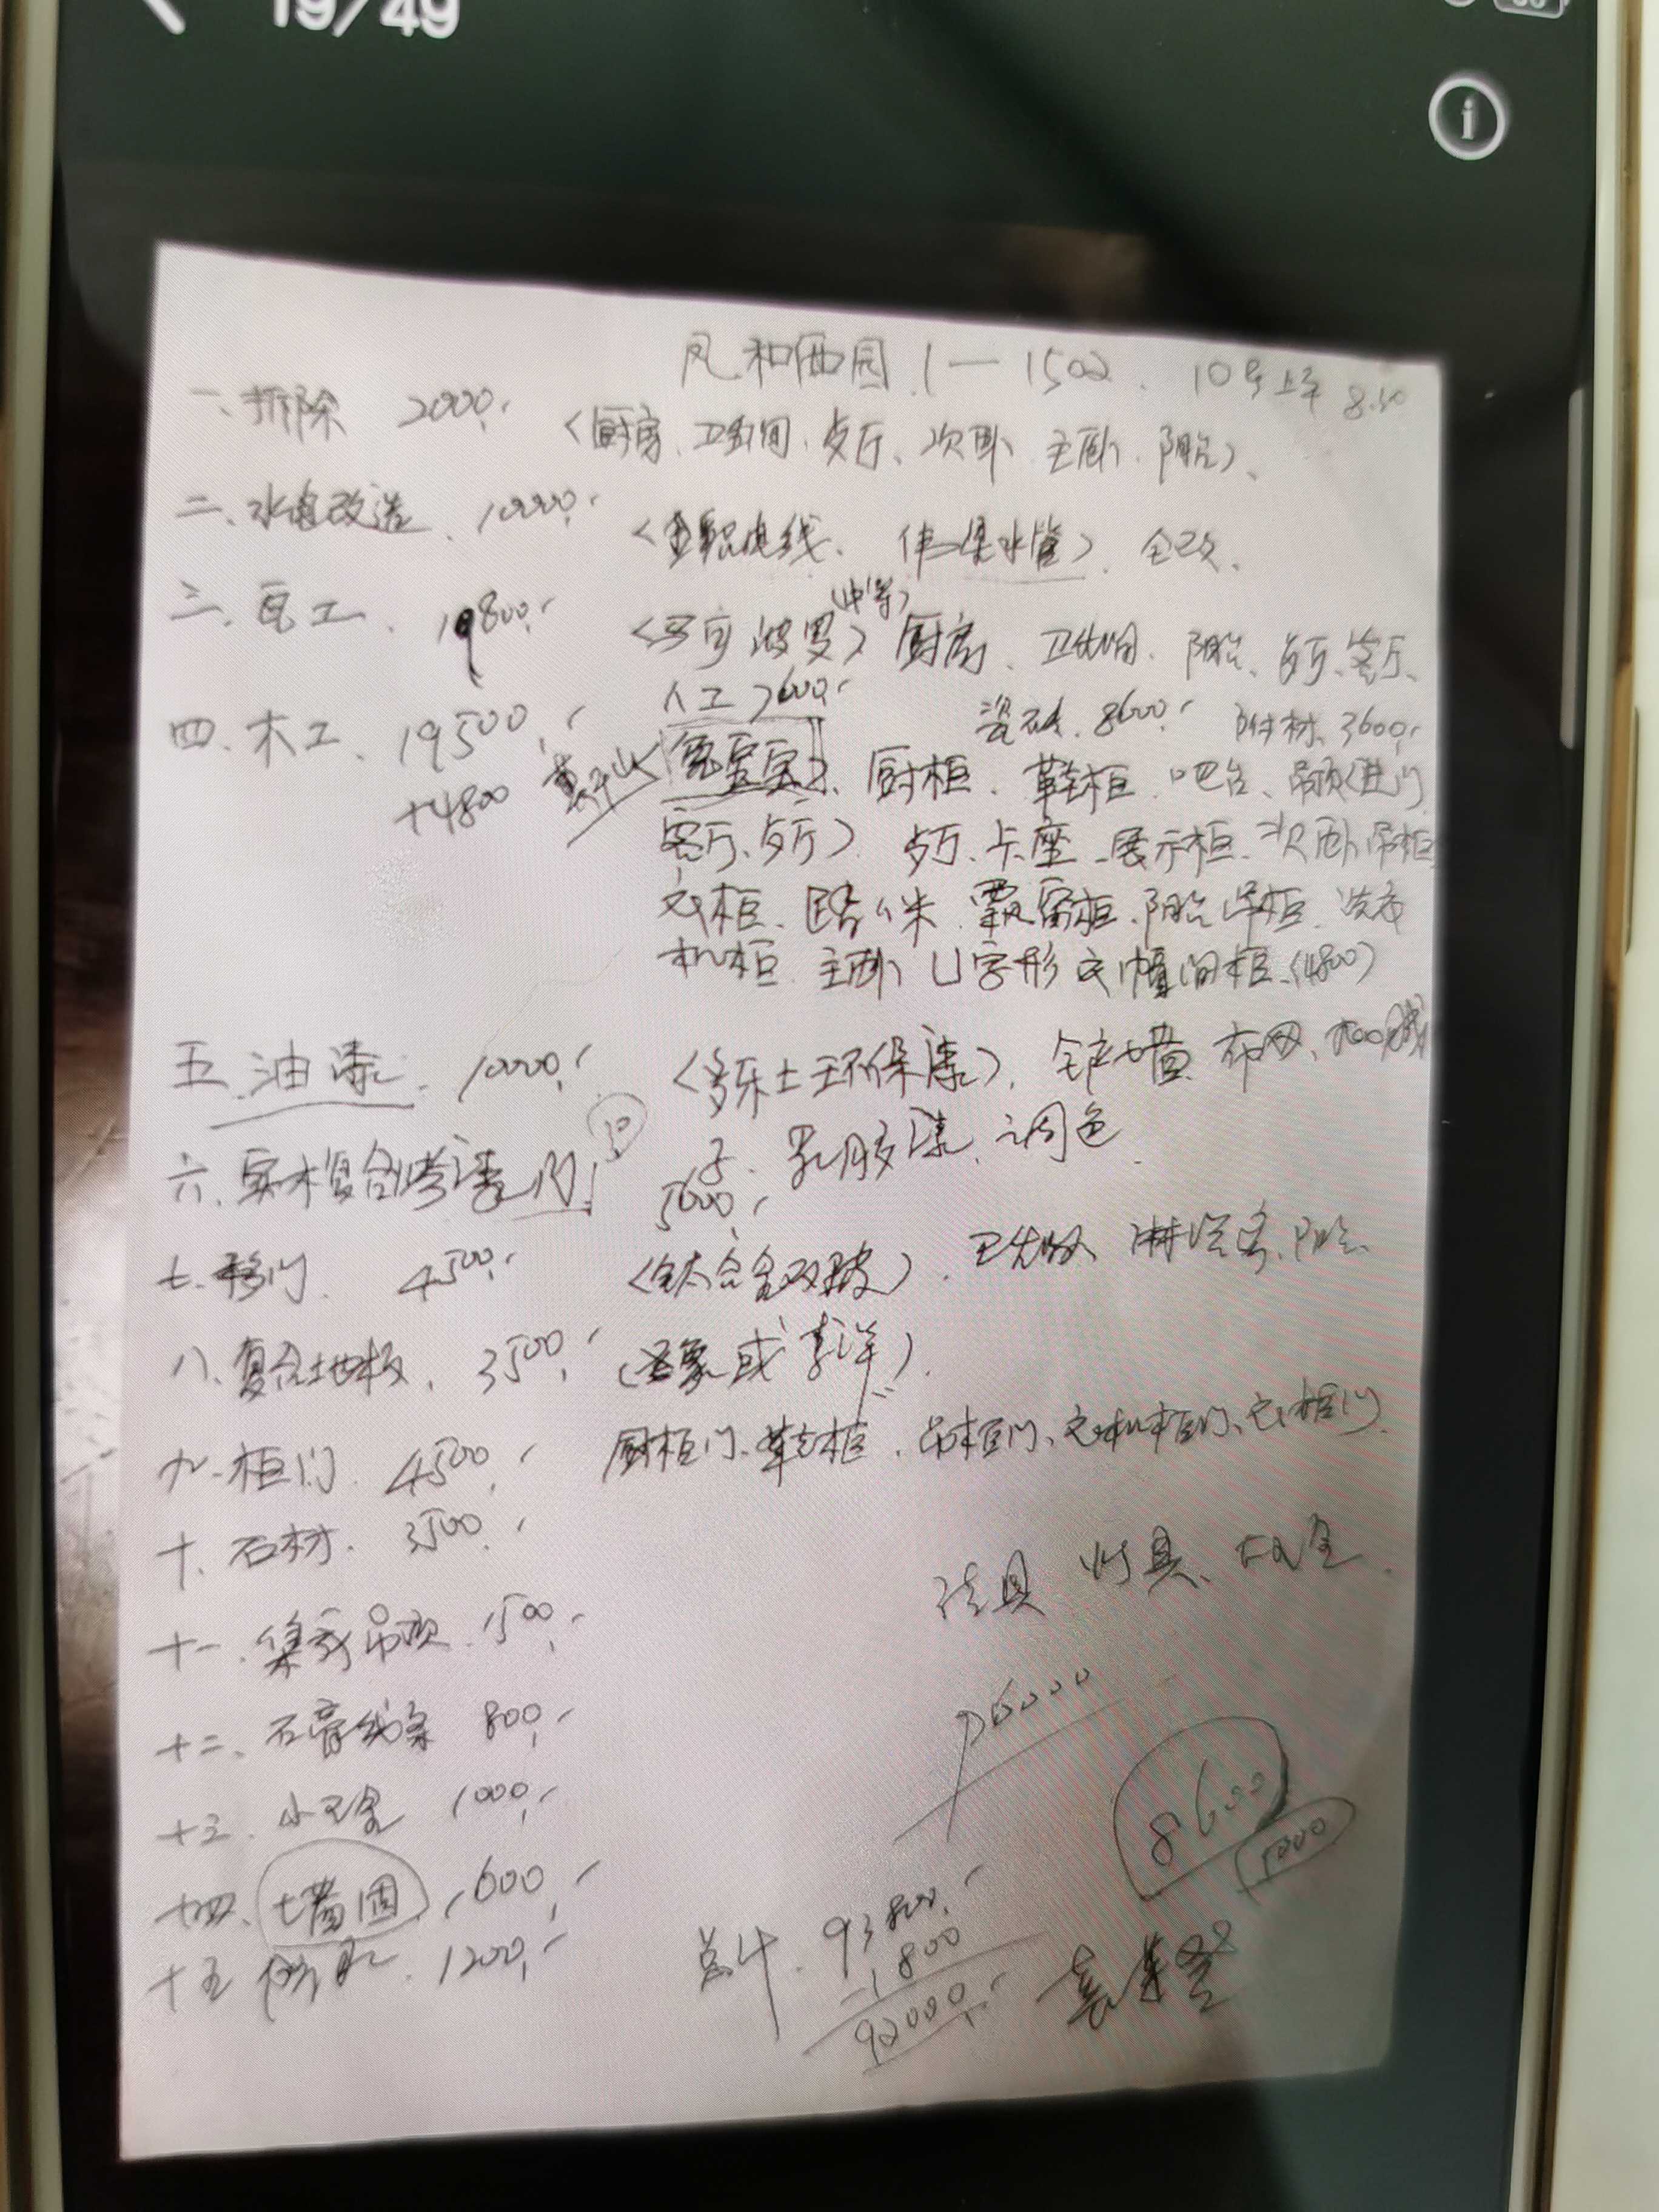 19/49
风和西园 1—1502. 10号上午 8:30
一、拆除 2000,
〈厨房、卫生间、歺厅、次卧、主卧、阳台〉、
二、水电改造、10000,
〈电线、伟星水管〉、全改、
三、瓦工、19800,
〈马可波罗〉(中等) 厨房、卫生间、阳台、歺厅、客厅、
人工7600, 瓷砖、8600, 附材、3600,
四、木工、19500,
+4800 〈兔宝宝〉、厨柜、鞋柜、吧台、吊顶(进门
客厅、歺厅〉歺厅、卡座、展示柜、次卧吊柜
衣柜、榻榻米、阳台吊柜、洗衣
机柜、主卧U字形衣帽间柜、(4800)
五、油漆、10000,
〈多乐士环保漆〉、全铲墙、布网、
乳胶漆、调色
六、实木复合烤漆门 5000,
七、移门、4500,
〈钛合金双玻〉、卫生间、淋浴房、阳台、
八、复合地板、3500, (圣象或)
九、柜门、4500, 厨柜门、鞋柜、吊柜门、衣柜门
十、石材、3500,
洁具 灯具、
十一、集成吊顶、1500,
十二、石膏线条 800,
十三、小五金 1000,
8600
1000
十四、墙固、600,
十五 1200,
总计、93800,
-1800
92000,